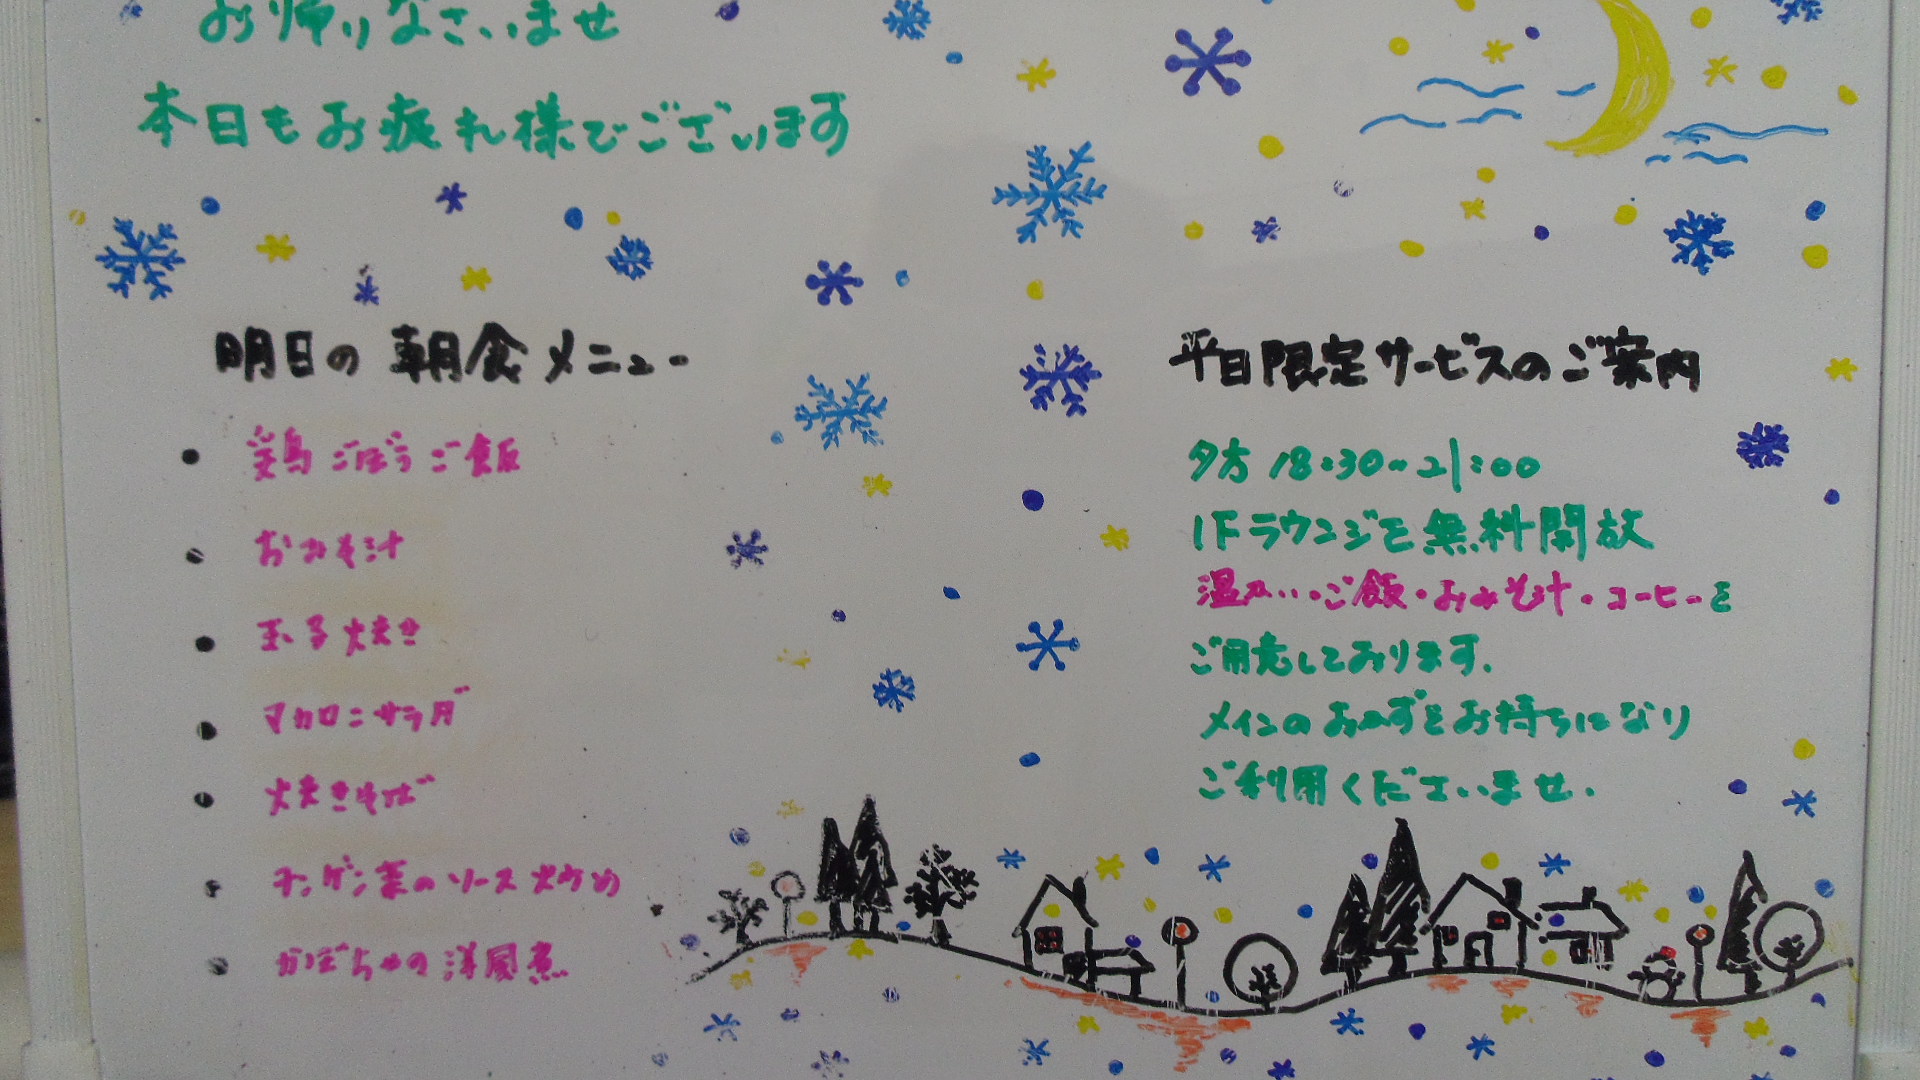 お帰りなさいませ
本日もお疲れ様でございます
明日の朝食メニュー
• 鶏ごぼうご飯
• おみそ汁
• 玉子焼き
• マカロニサラダ
• 焼きそば
• チンゲン菜のソース炒め
• かぼちゃの洋風煮
平日限定サービスのご案内
夕方 18:30~21:00
1Fラウンジを無料開放
温かいご飯・おみそ汁・コーヒーを
ご用意しております.
メインのおかずをお持ちになり
ご利用くださいませ.